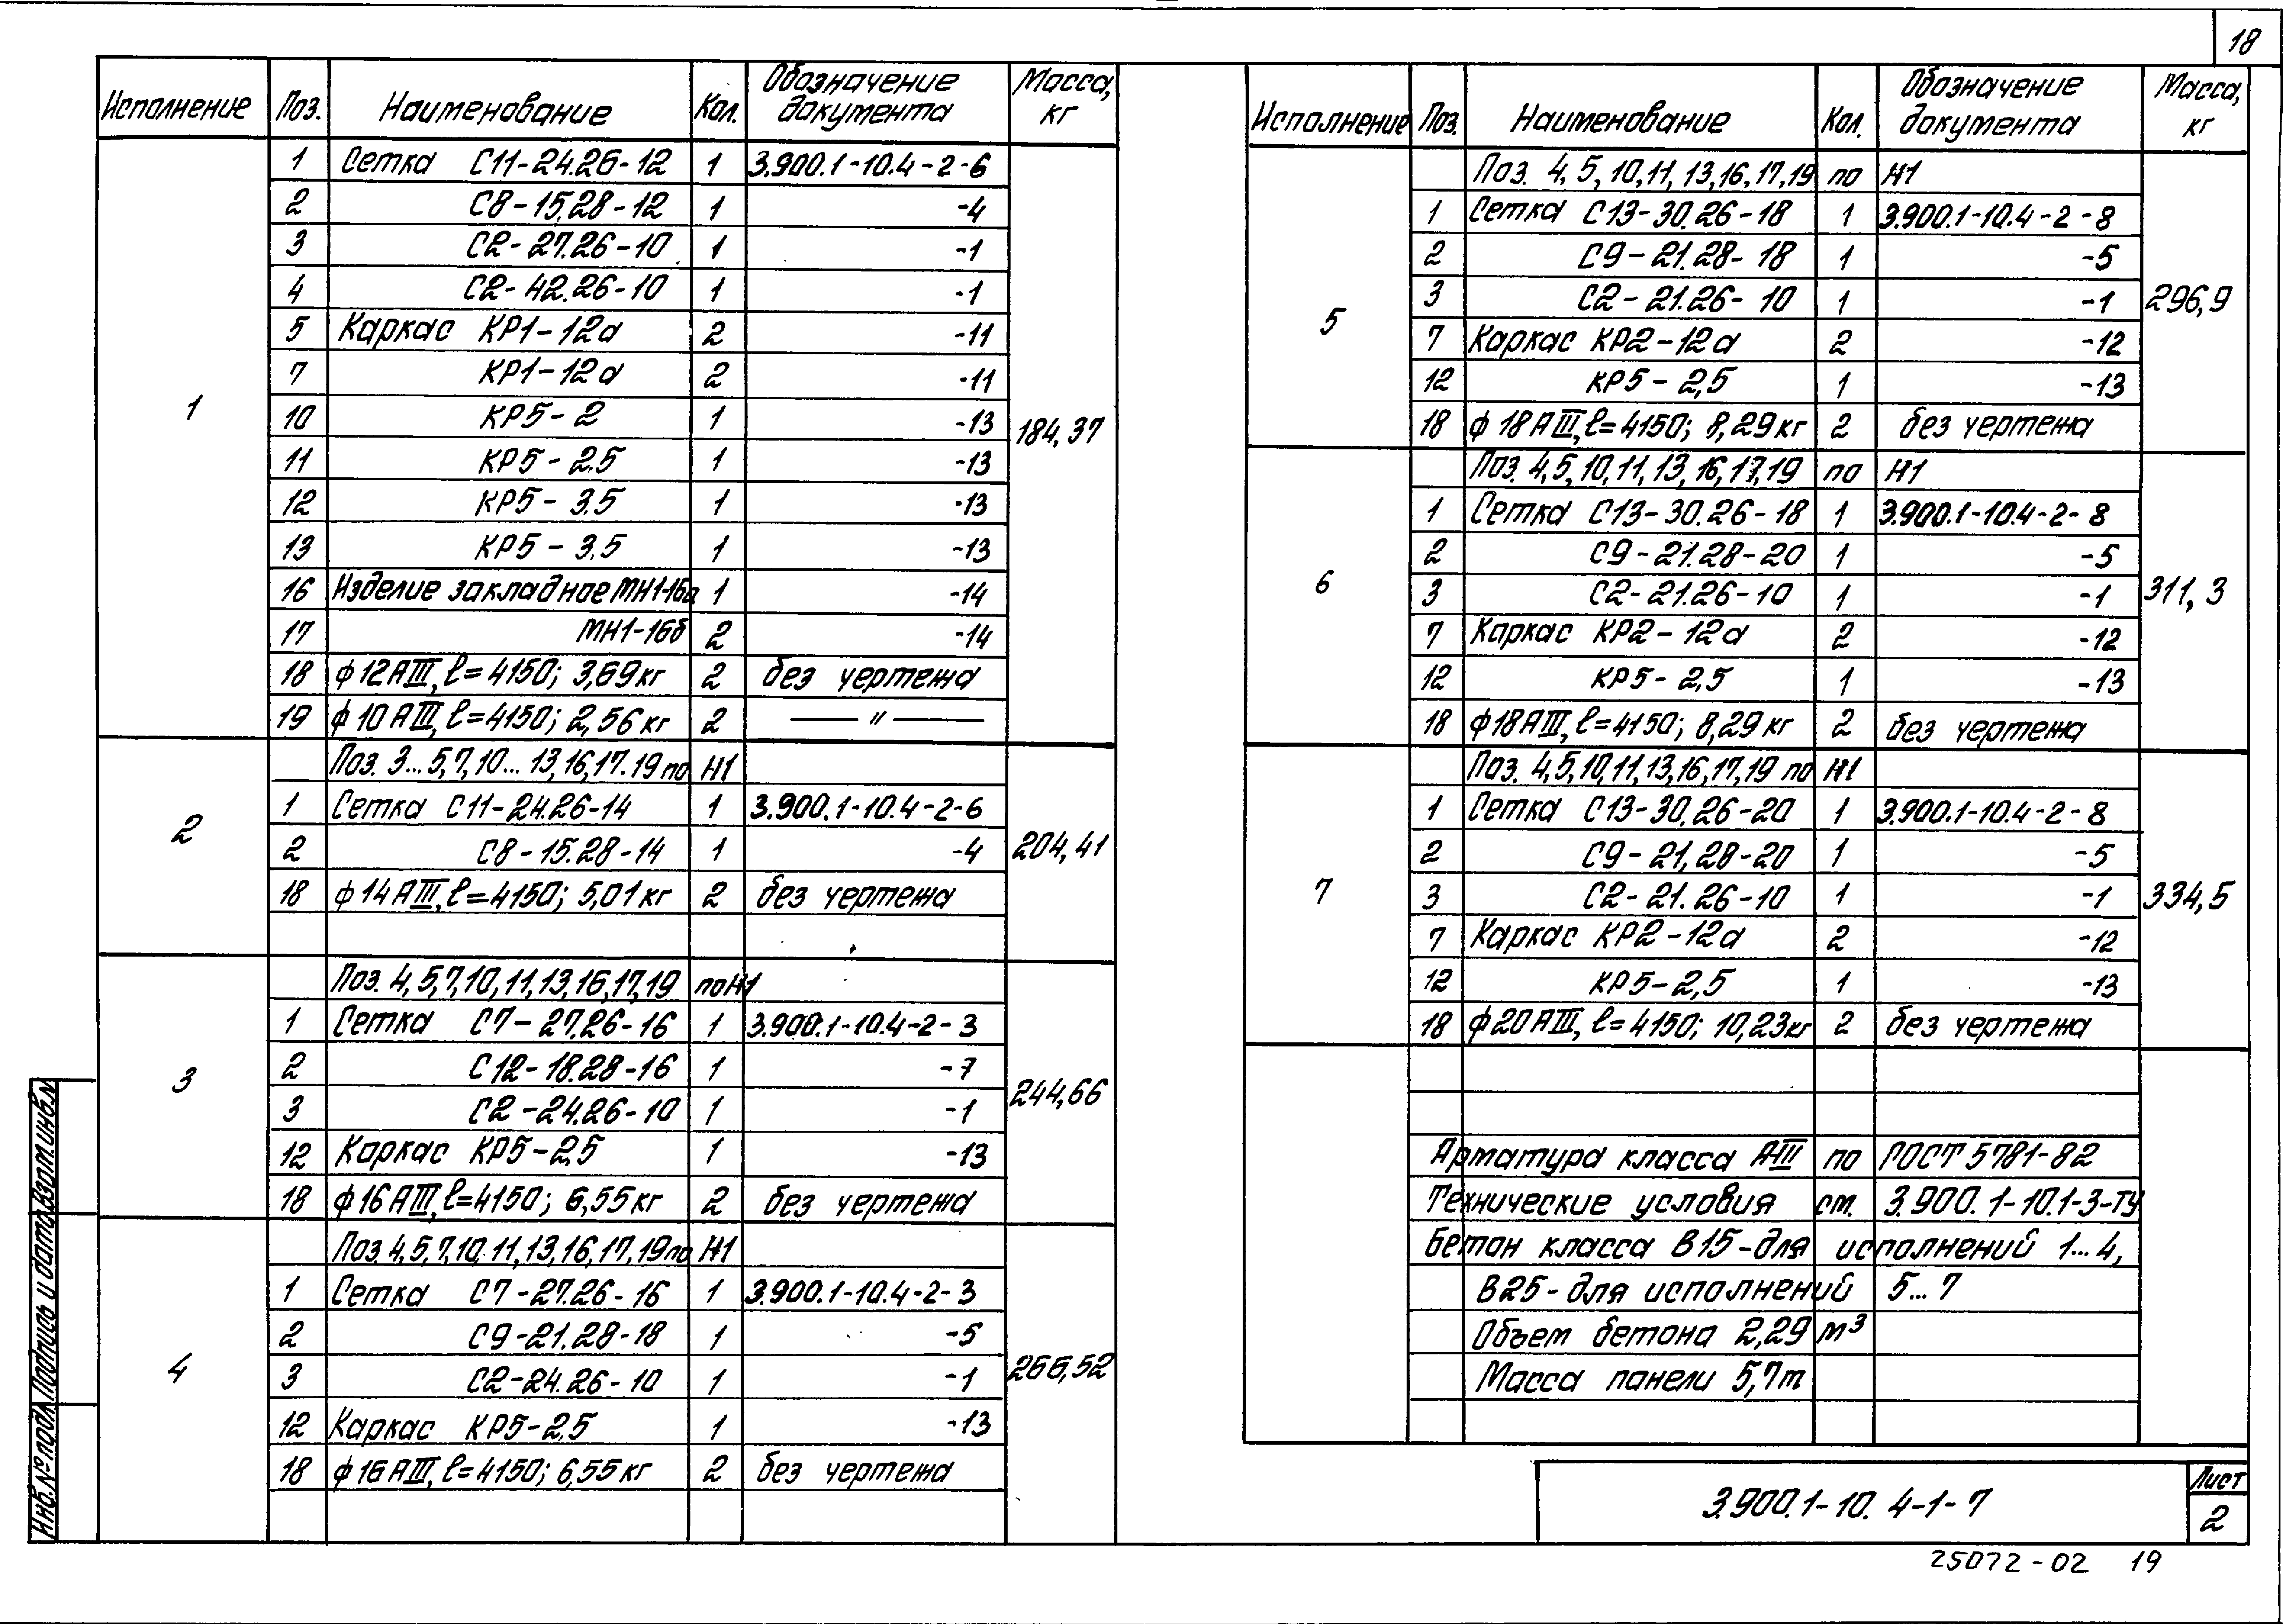 18
Исполнение Поз. Наименование Кол. Обозначение документа Масса, кг
1 184,37
1 Сетка С11-24.26-12 1 3.900.1-10.4-2-6
2 С8-15.28-12 1 -4
3 С2-27.26-10 1 -1
4 С2-42.26-10 1 -1
5 Каркас КР1-12а 2 -11
7 КР1-12а 2 -11
10 КР5-2 1 -13
11 КР5-2,5 1 -13
12 КР5-3,5 1 -13
13 КР5-3,5 1 -13
16 Изделие закладное МН1-16а 1 -14
17 МН1-16б 2 -14
18 ф12АIII, ℓ=4150; 3,69кг 2 без чертежа
19 ф10АIII, ℓ=4150; 2,56кг 2 — " —
2 204,41
Поз. 3...5,7,10...13,16,17.19 по Н1
1 Сетка С11-24.26-14 1 3.900.1-10.4-2-6
2 С8-15.28-14 1 -4
18 ф14АIII, ℓ=4150; 5,01кг 2 без чертежа
3 244,66
Поз. 4,5,7,10,11,13,16,17,19 по Н1
1 Сетка С7-27.26-16 1 3.900.1-10.4-2-3
2 С12-18.28-16 1 -7
3 С2-24.26-10 1 -1
12 Каркас КР5-2,5 1 -13
18 ф16АIII, ℓ=4150; 6,55кг 2 без чертежа
4 266,52
Поз. 4,5,7,10.11,13,16,17,19 по Н1
1 Сетка С7-27.26-16 1 3.900.1-10.4-2-3
2 С9-21.28-18 1 -5
3 С2-24.26-10 1 -1
12 Каркас КР5-2,5 1 -13
18 ф16АIII, ℓ=4150; 6,55кг 2 без чертежа
Исполнение Поз. Наименование Кол. Обозначение документа Масса, кг
5 296,9
Поз. 4,5,10,11,13,16,17,19 по Н1
1 Сетка С13-30.26-18 1 3.900.1-10.4-2-8
2 С9-21.28-18 1 -5
3 С2-21.26-10 1 -1
7 Каркас КР2-12а 2 -12
12 КР5-2,5 1 -13
18 ф18АIII, ℓ=4150; 8,29кг 2 без чертежа
6 311,3
Поз. 4,5,10,11,13,16,17,19 по Н1
1 Сетка С13-30.26-18 1 3.900.1-10.4-2-8
2 С9-21.28-20 1 -5
3 С2-21.26-10 1 -1
7 Каркас КР2-12а 2 -12
12 КР5-2,5 1 -13
18 ф18АIII, ℓ=4150; 8,29кг 2 без чертежа
7 334,5
Поз. 4,5,10,11,13,16,17,19 по Н1
1 Сетка С13-30.26-20 1 3.900.1-10.4-2-8
2 С9-21,28-20 1 -5
3 С2-21.26-10 1 -1
7 Каркас КР2-12а 2 -12
12 КР5-2,5 1 -13
18 ф20АIII, ℓ=4150; 10,23кг 2 без чертежа
Арматура класса АIII по ГОСТ 5781-82
Технические условия см. 3.900.1-10.1-3-ТУ
Бетон класса В15-для исполнений 1...4,
В25-для исполнений 5...7
Объем бетона 2,29 м³
Масса панели 5,7т
Инв.№подл. Подпись и дата Взам.инв.№
3.900.1-10.4-1-7
Лист
2
25072-02 19